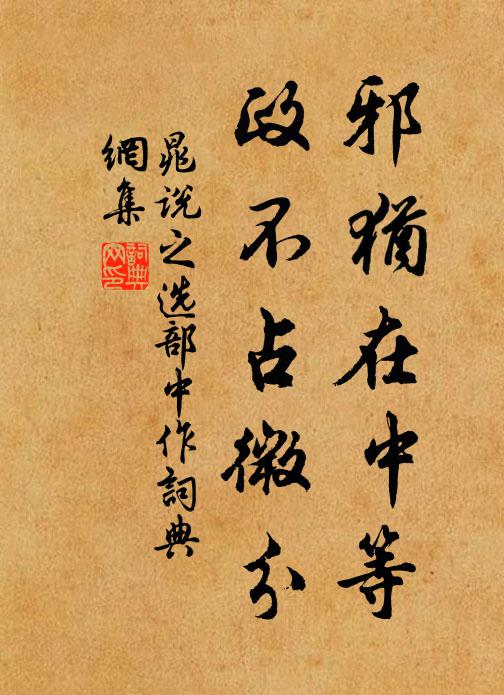 邪猶在中等
政不占微分
晁說之選部中作詞典
網集
詞典網印